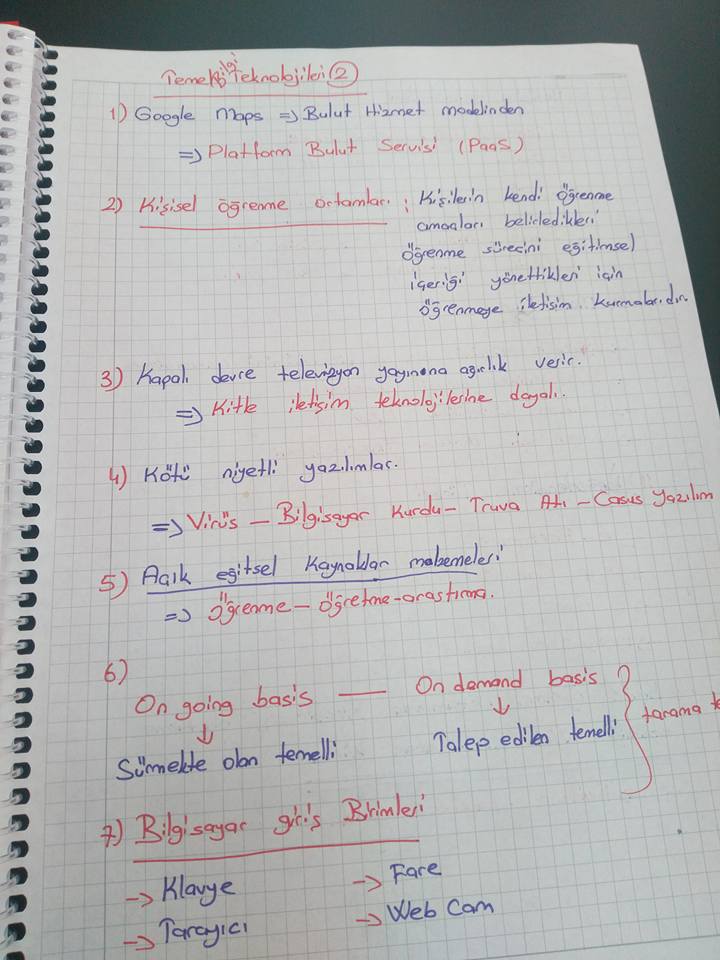 Temel Bilgi Teknolojileri 2
1) Google Maps => Bulut Hizmet modelinden
=> Platform Bulut Servisi (PaaS)
2) Kişisel öğrenme ortamları : Kişilerin kendi öğrenme
amaçları belirledikleri
öğrenme sürecini eğitimsel
içeriği yönettikleri için
öğrenmeye iletişim kurmalarıdır
3) Kapalı devre televizyon yayınına ağırlık verir.
=> Kitle iletişim teknolojilerine dayalı.
4) Kötü niyetli yazılımlar.
=> Virüs - Bilgisayar Kurdu - Truva Atı - Casus Yazılım
5) Açık eğitsel Kaynaklar malzemeleri
=> öğrenme - öğretme - araştırma.
6)
On going basis — On demand basis
↓ ↓
Sürmekte olan temelli Talep edilen temelli } tarama
7) Bilgisayar giriş Birimleri
→ Klavye → Fare
→ Tarayıcı → Web Cam